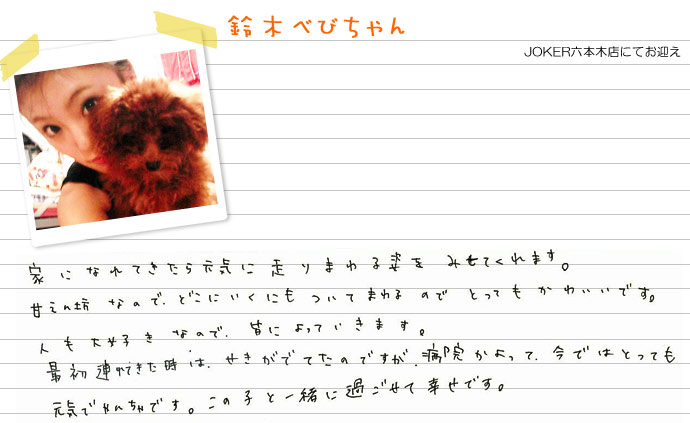 鈴木べびちゃん
JOKER六本木店にてお迎え
家になれてきたら元気に走りまわる姿をみせてくれます。
甘えん坊なので、どこにいくにもついてまわるのでとってもかわいいです。
人も大好きなので、皆によっていきます。
最初連れてきた時は、せきがでてたのですが、病院かよって、今ではとっても
元気でやんちゃです。この子と一緒に過ごせて幸せです。